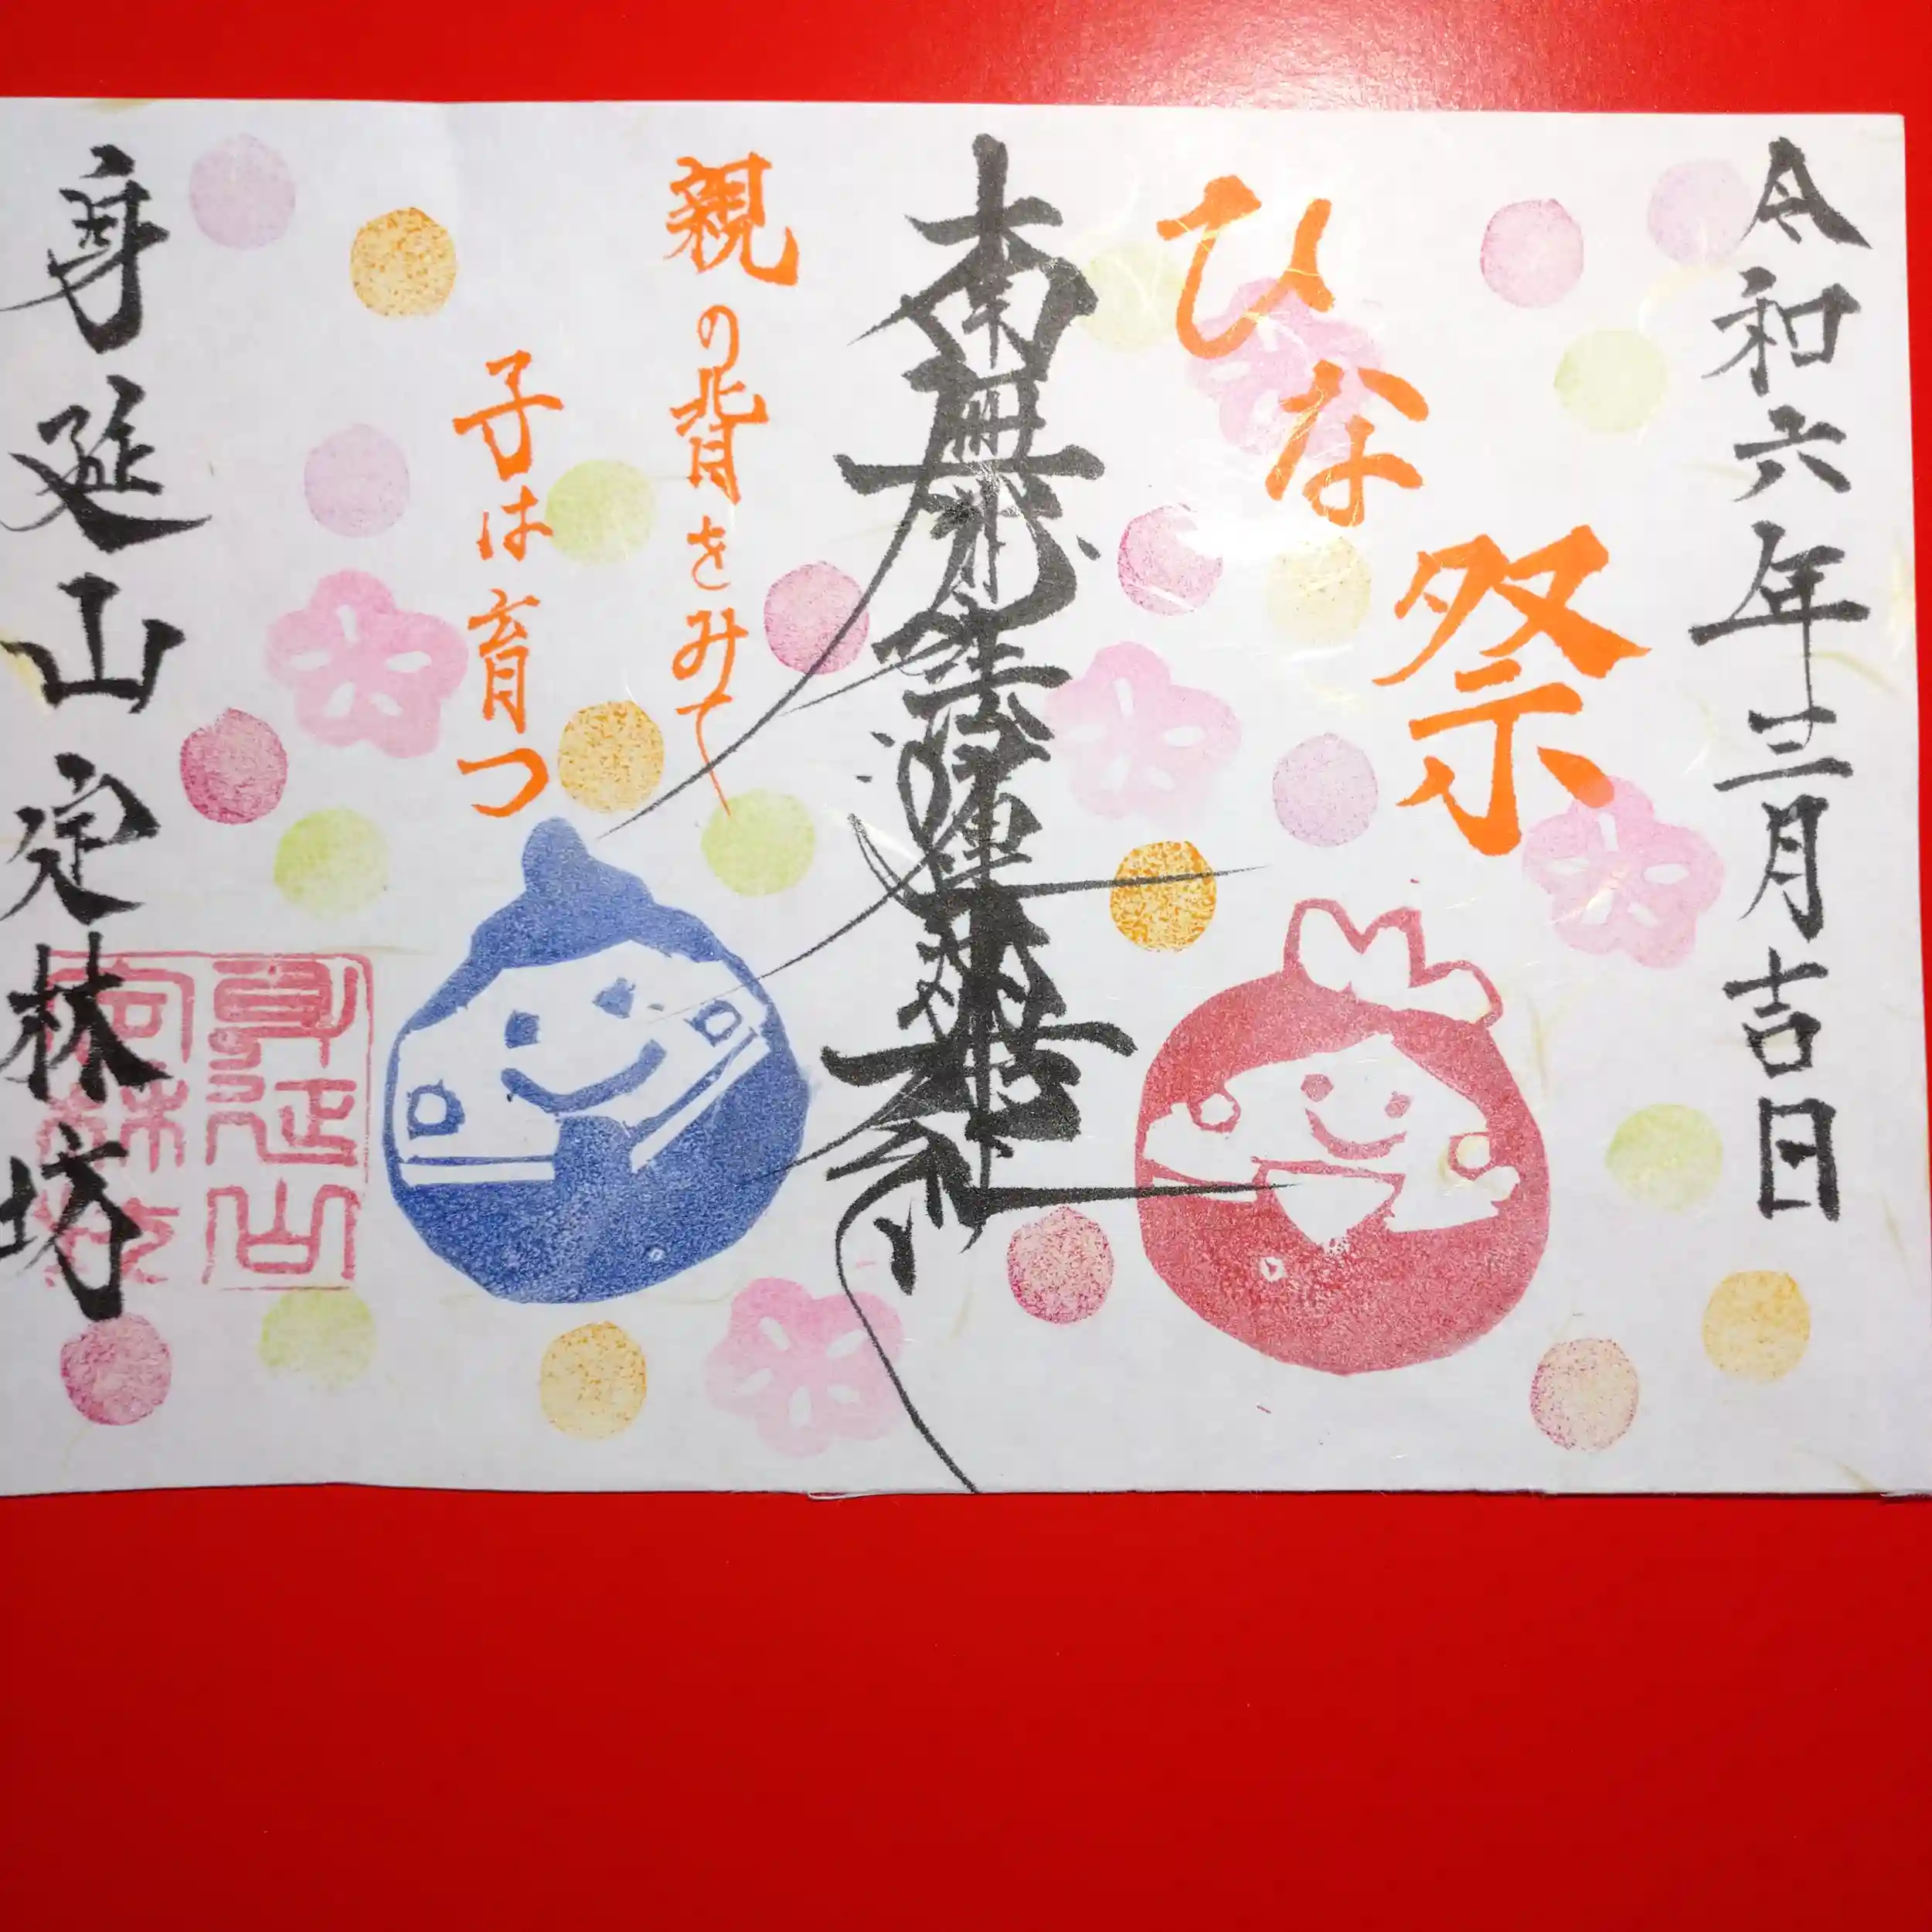 令和六年三月吉日
ひな祭
南無妙法蓮華経
親の背をみて
子は育つ
身延山定林坊